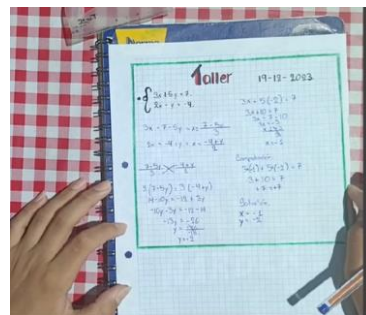 Taller
19-12-2023
3x + 5y = 7
2x - y = -4
3x = 7 - 5y = x = 7-5y/3
2x = -4 + y = x = -4+y/2
7-5y/3 -4+y/2
2(7-5y) = 3(-4+y)
14-10y = -12 + 3y
-10y-3y = -12-14
-13y = -26
y = -26/-13
y = 2
3x + 5(2) = 7
3x + 10 = 7
3x = 7 - 10
3x = -3
x = -1
Comprobación
3(-1) + 5(2) = 7
-3 + 10 = 7
7 = 7
Solución
x = -1
y = 2